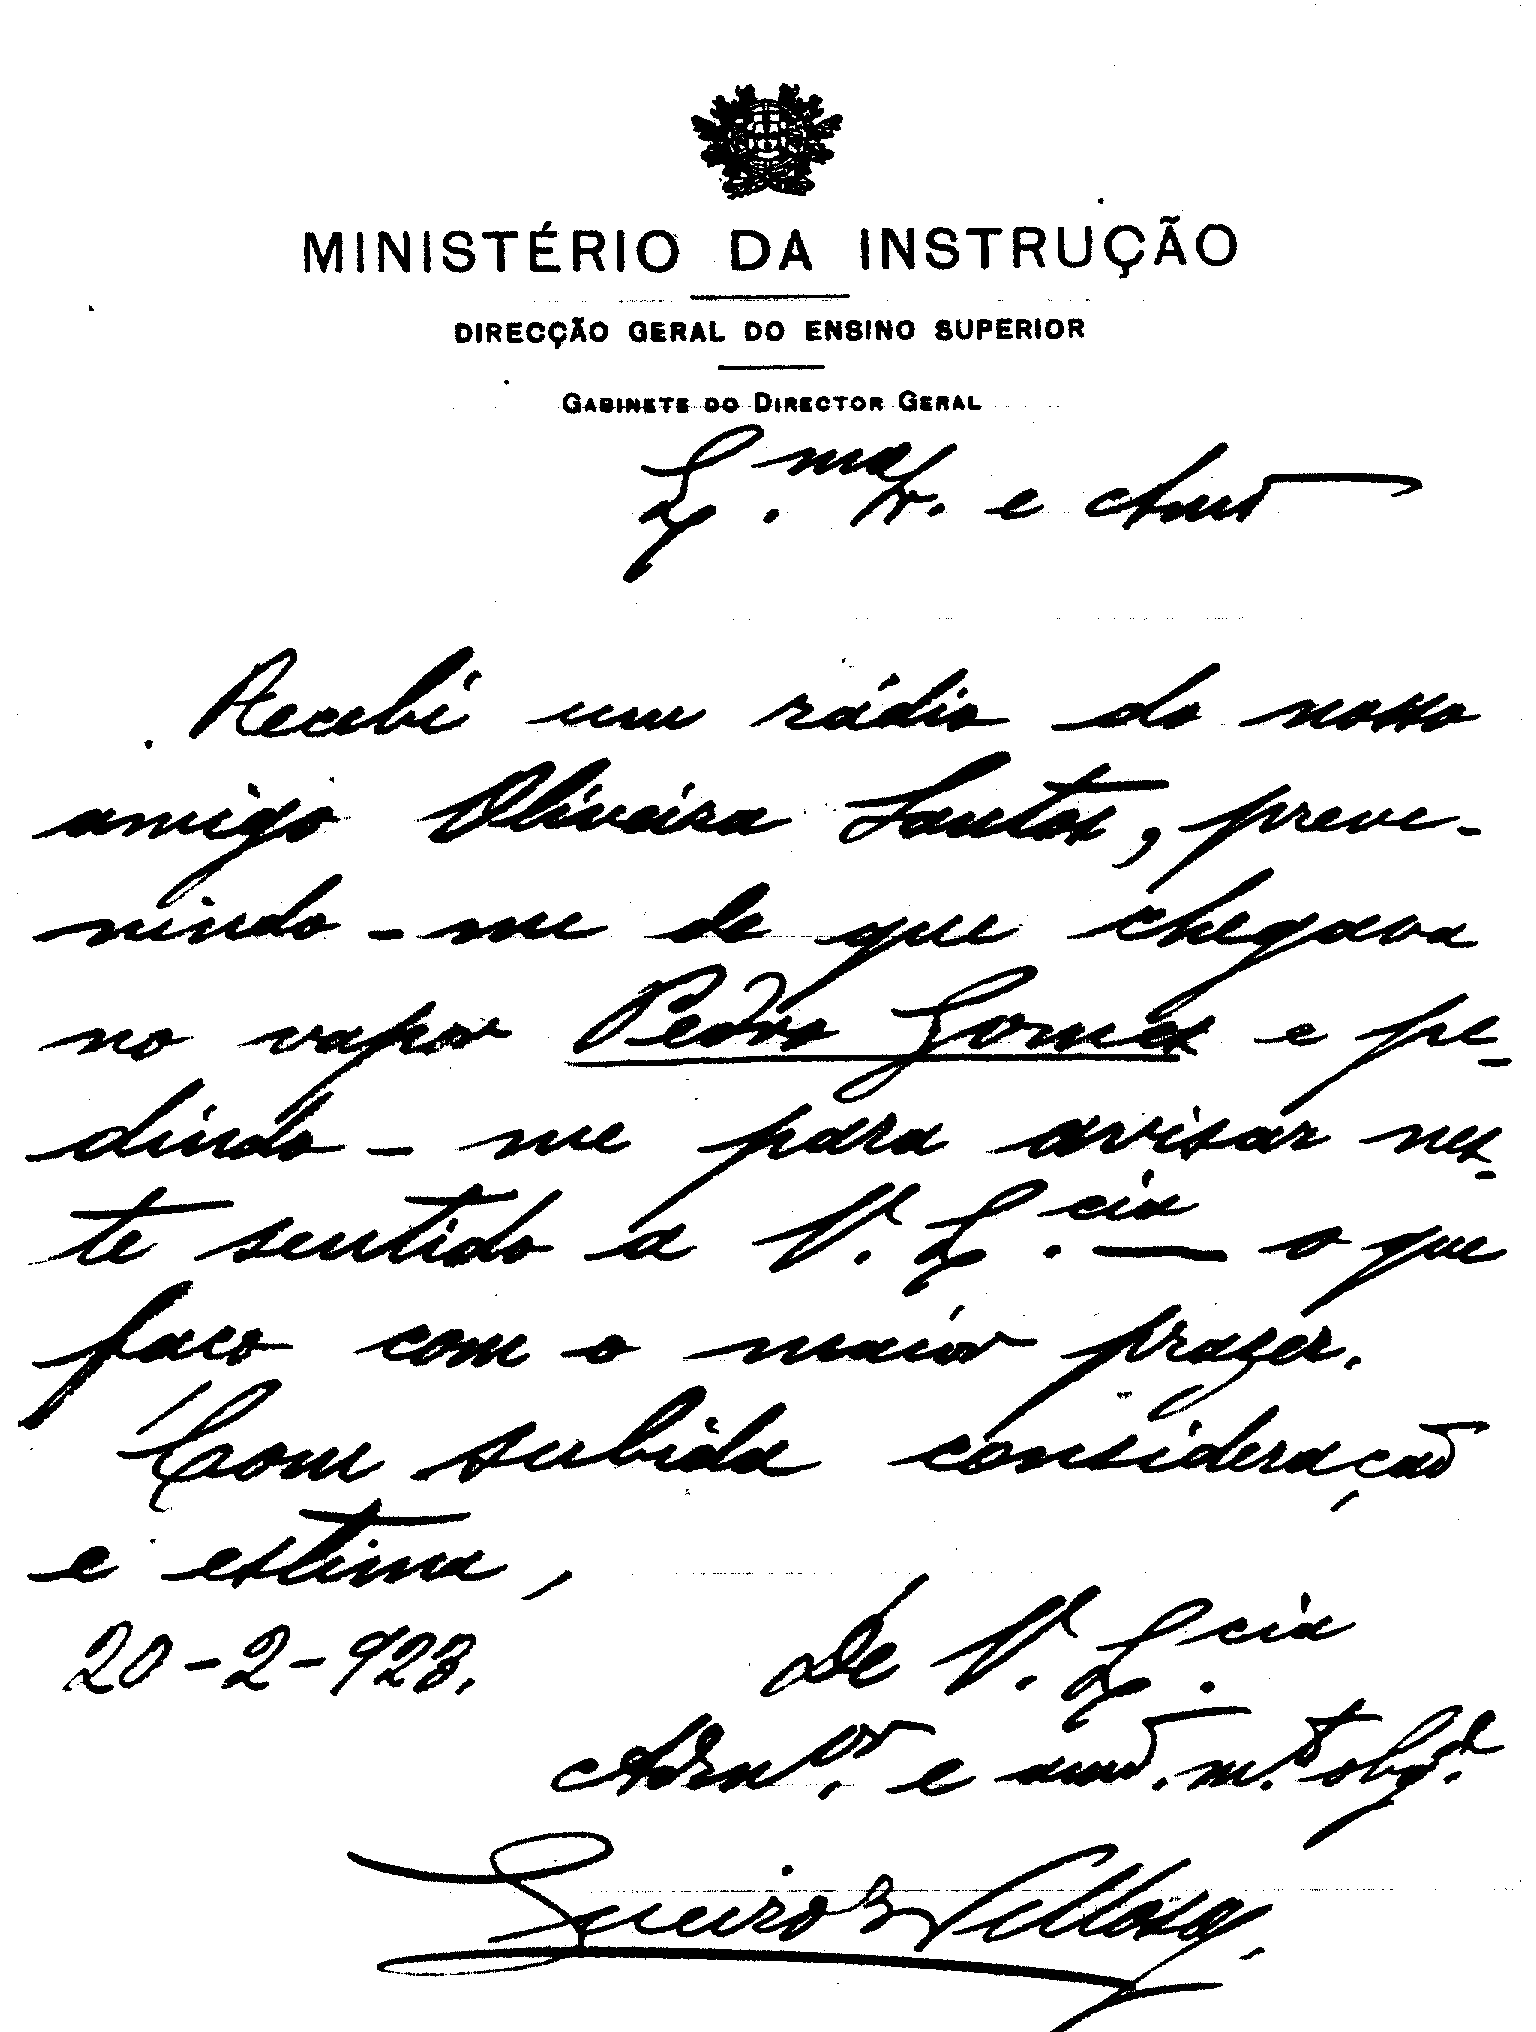 MINISTÉRIO DA INSTRUÇÃO
DIRECÇÃO GERAL DO ENSINO SUPERIOR
GABINETE DO DIRECTOR GERAL
E.ma Sr. e Amo
Recebi um rádio do nosso
amigo Oliveira Santos, preve-
nindo-me de que chegava
no vapor Pedro Gomes e pe-
dindo-me para avisar nes-
te sentido a V. E.cia — o que
faço com o maior prazer.
Com subida consideração
e estima,
20-2-923. De V. E.cia
Admor. e amo. m.to obgo.
Queiroz Velloso.